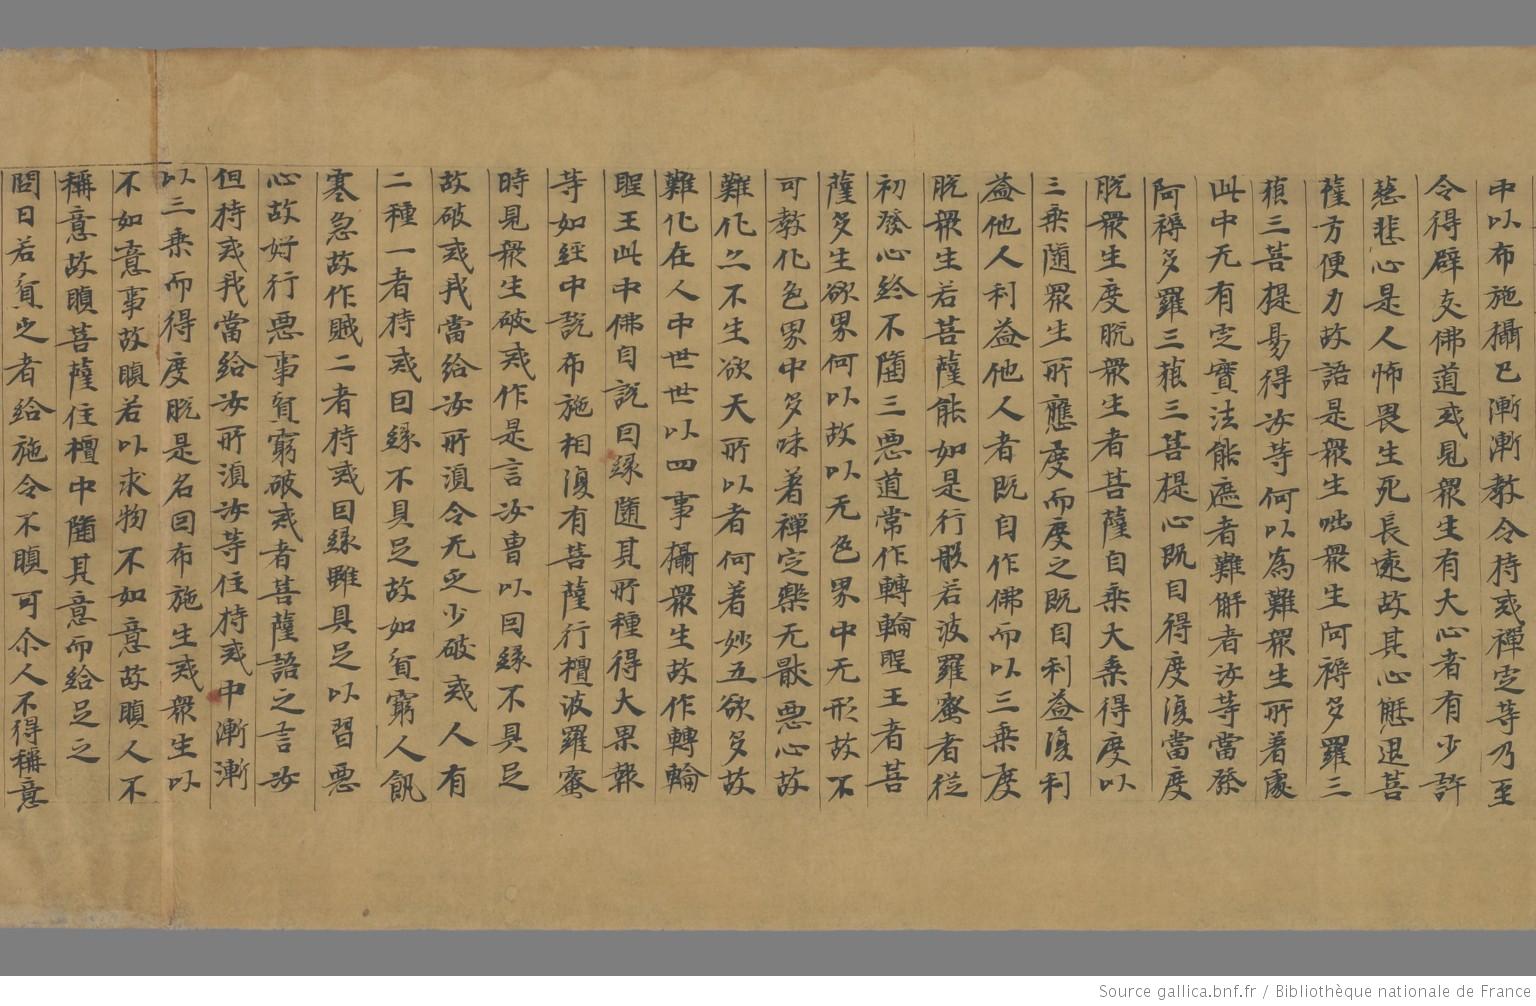 中以布施攝已漸漸教令持戒禪定等乃至
令得辟支佛道或見眾生有大心者有少許
慈悲心是人怖畏生死長遠故其心懸退菩
薩方便力故語是眾生咄眾生阿耨多羅三
藐三菩提易得汝等何以為難眾生所著處
此中无有定實法能遮者難解者汝等當發
阿耨多羅三藐三菩提心既自得度復當度
脫眾生度脫眾生者菩薩自乘大乘得度以
三乘隨眾生所應度而度之既自利益復利
益他人利益他人者既自作佛而以三乘度
脫眾生若菩薩能如是行般若波羅蜜者從
初發心終不墮三惡道常作轉輪聖王者菩
薩多生欲界何以故以无色界中无形故不
可教化色界中多味著禪定樂无猒惡心故
難化亦不生欲天所以者何著妙五欲多故
難化在人中世世以四事攝眾生故作轉輪
聖王此中佛自說因緣隨其所種得大果報
等如經中說布施相復有菩薩行檀波羅蜜
時見眾生破戒作是言汝曹以因緣不具足
故破戒我當給汝所湏令无乏少破戒人有
二種一者持戒因緣不具足故如貧窮人飢
寒急故作賊二者持戒因緣雖具足以習惡
心故好行惡事貧窮破戒者菩薩語之言汝
但持戒我當給汝所湏汝等住持戒中漸漸
以三乘而得度脫是名因布施生戒眾生以
不如意事故瞋若以求物不如意故瞋人不
稱意故瞋菩薩住檀中隨其意而給足之
問曰若貧乏者給施令不瞋可尒人不得稱意